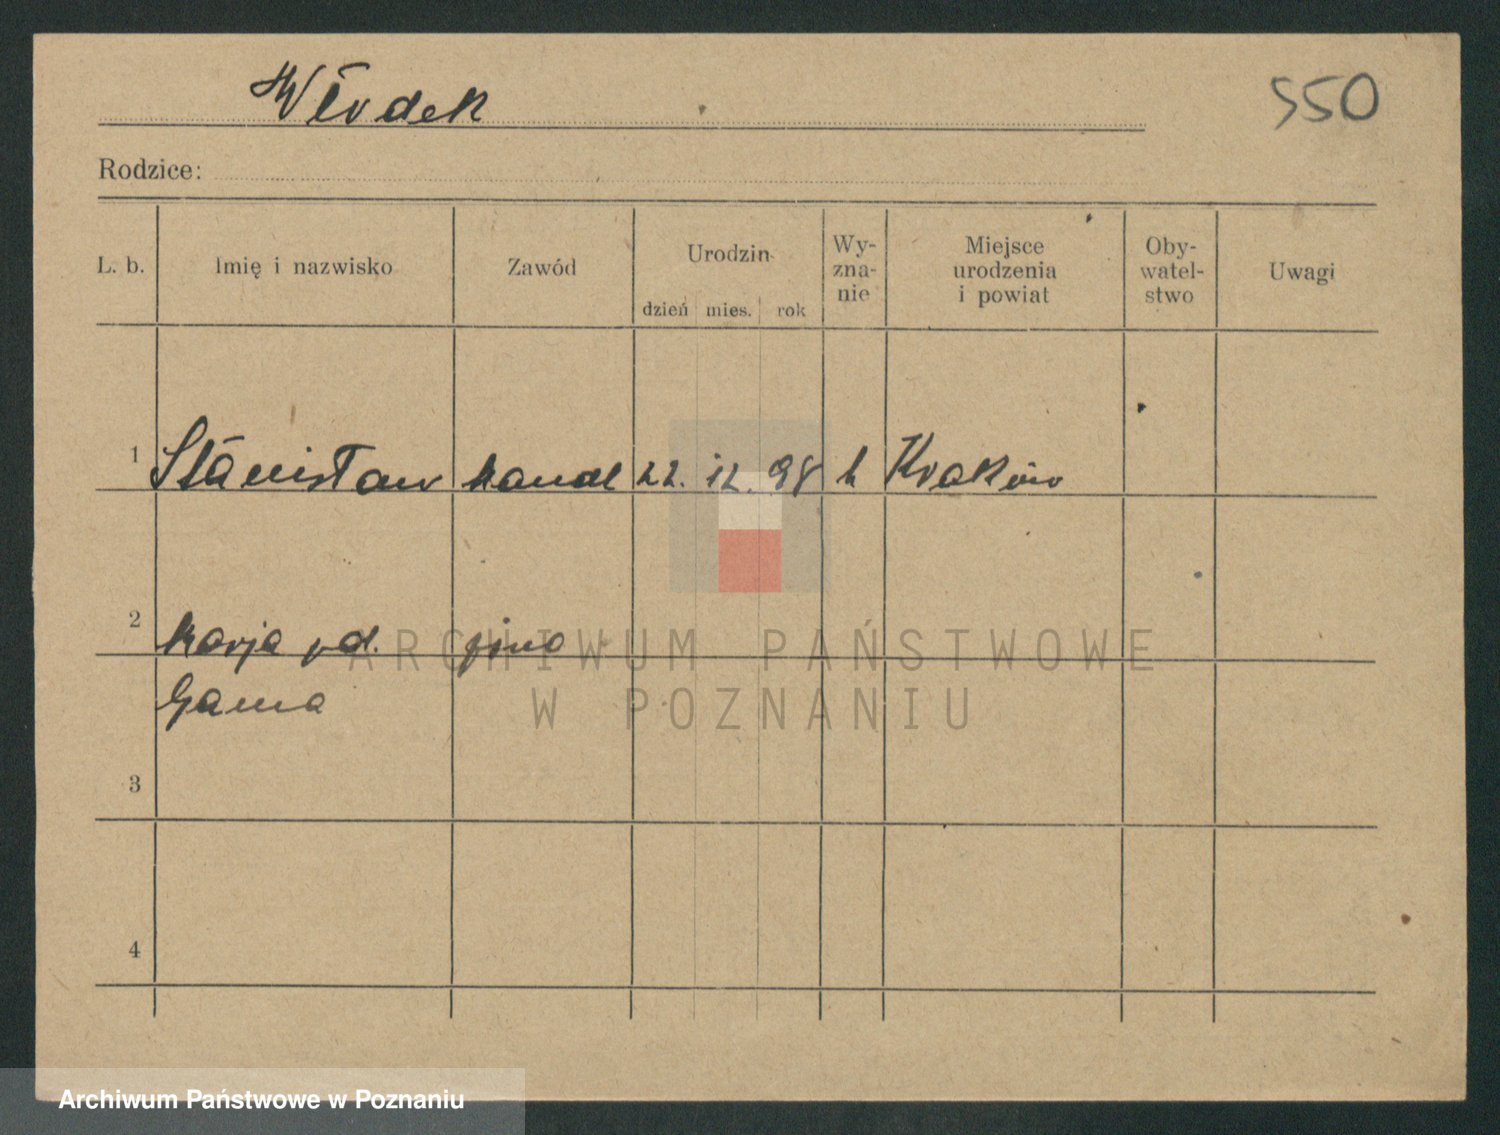 Włodek
550
Rodzice:
L. b. Imię i nazwisko Zawód Urodzin dzień mies. rok Wy-zna-nie Miejsce urodzenia i powiat Oby-watel-stwo Uwagi
1 Stanisław handl 22. 12. 98 k Kraków
2 Marja
3
4
ARCHIWUM PAŃSTWOWE
W POZNANIU
Archiwum Państwowe w Poznaniu